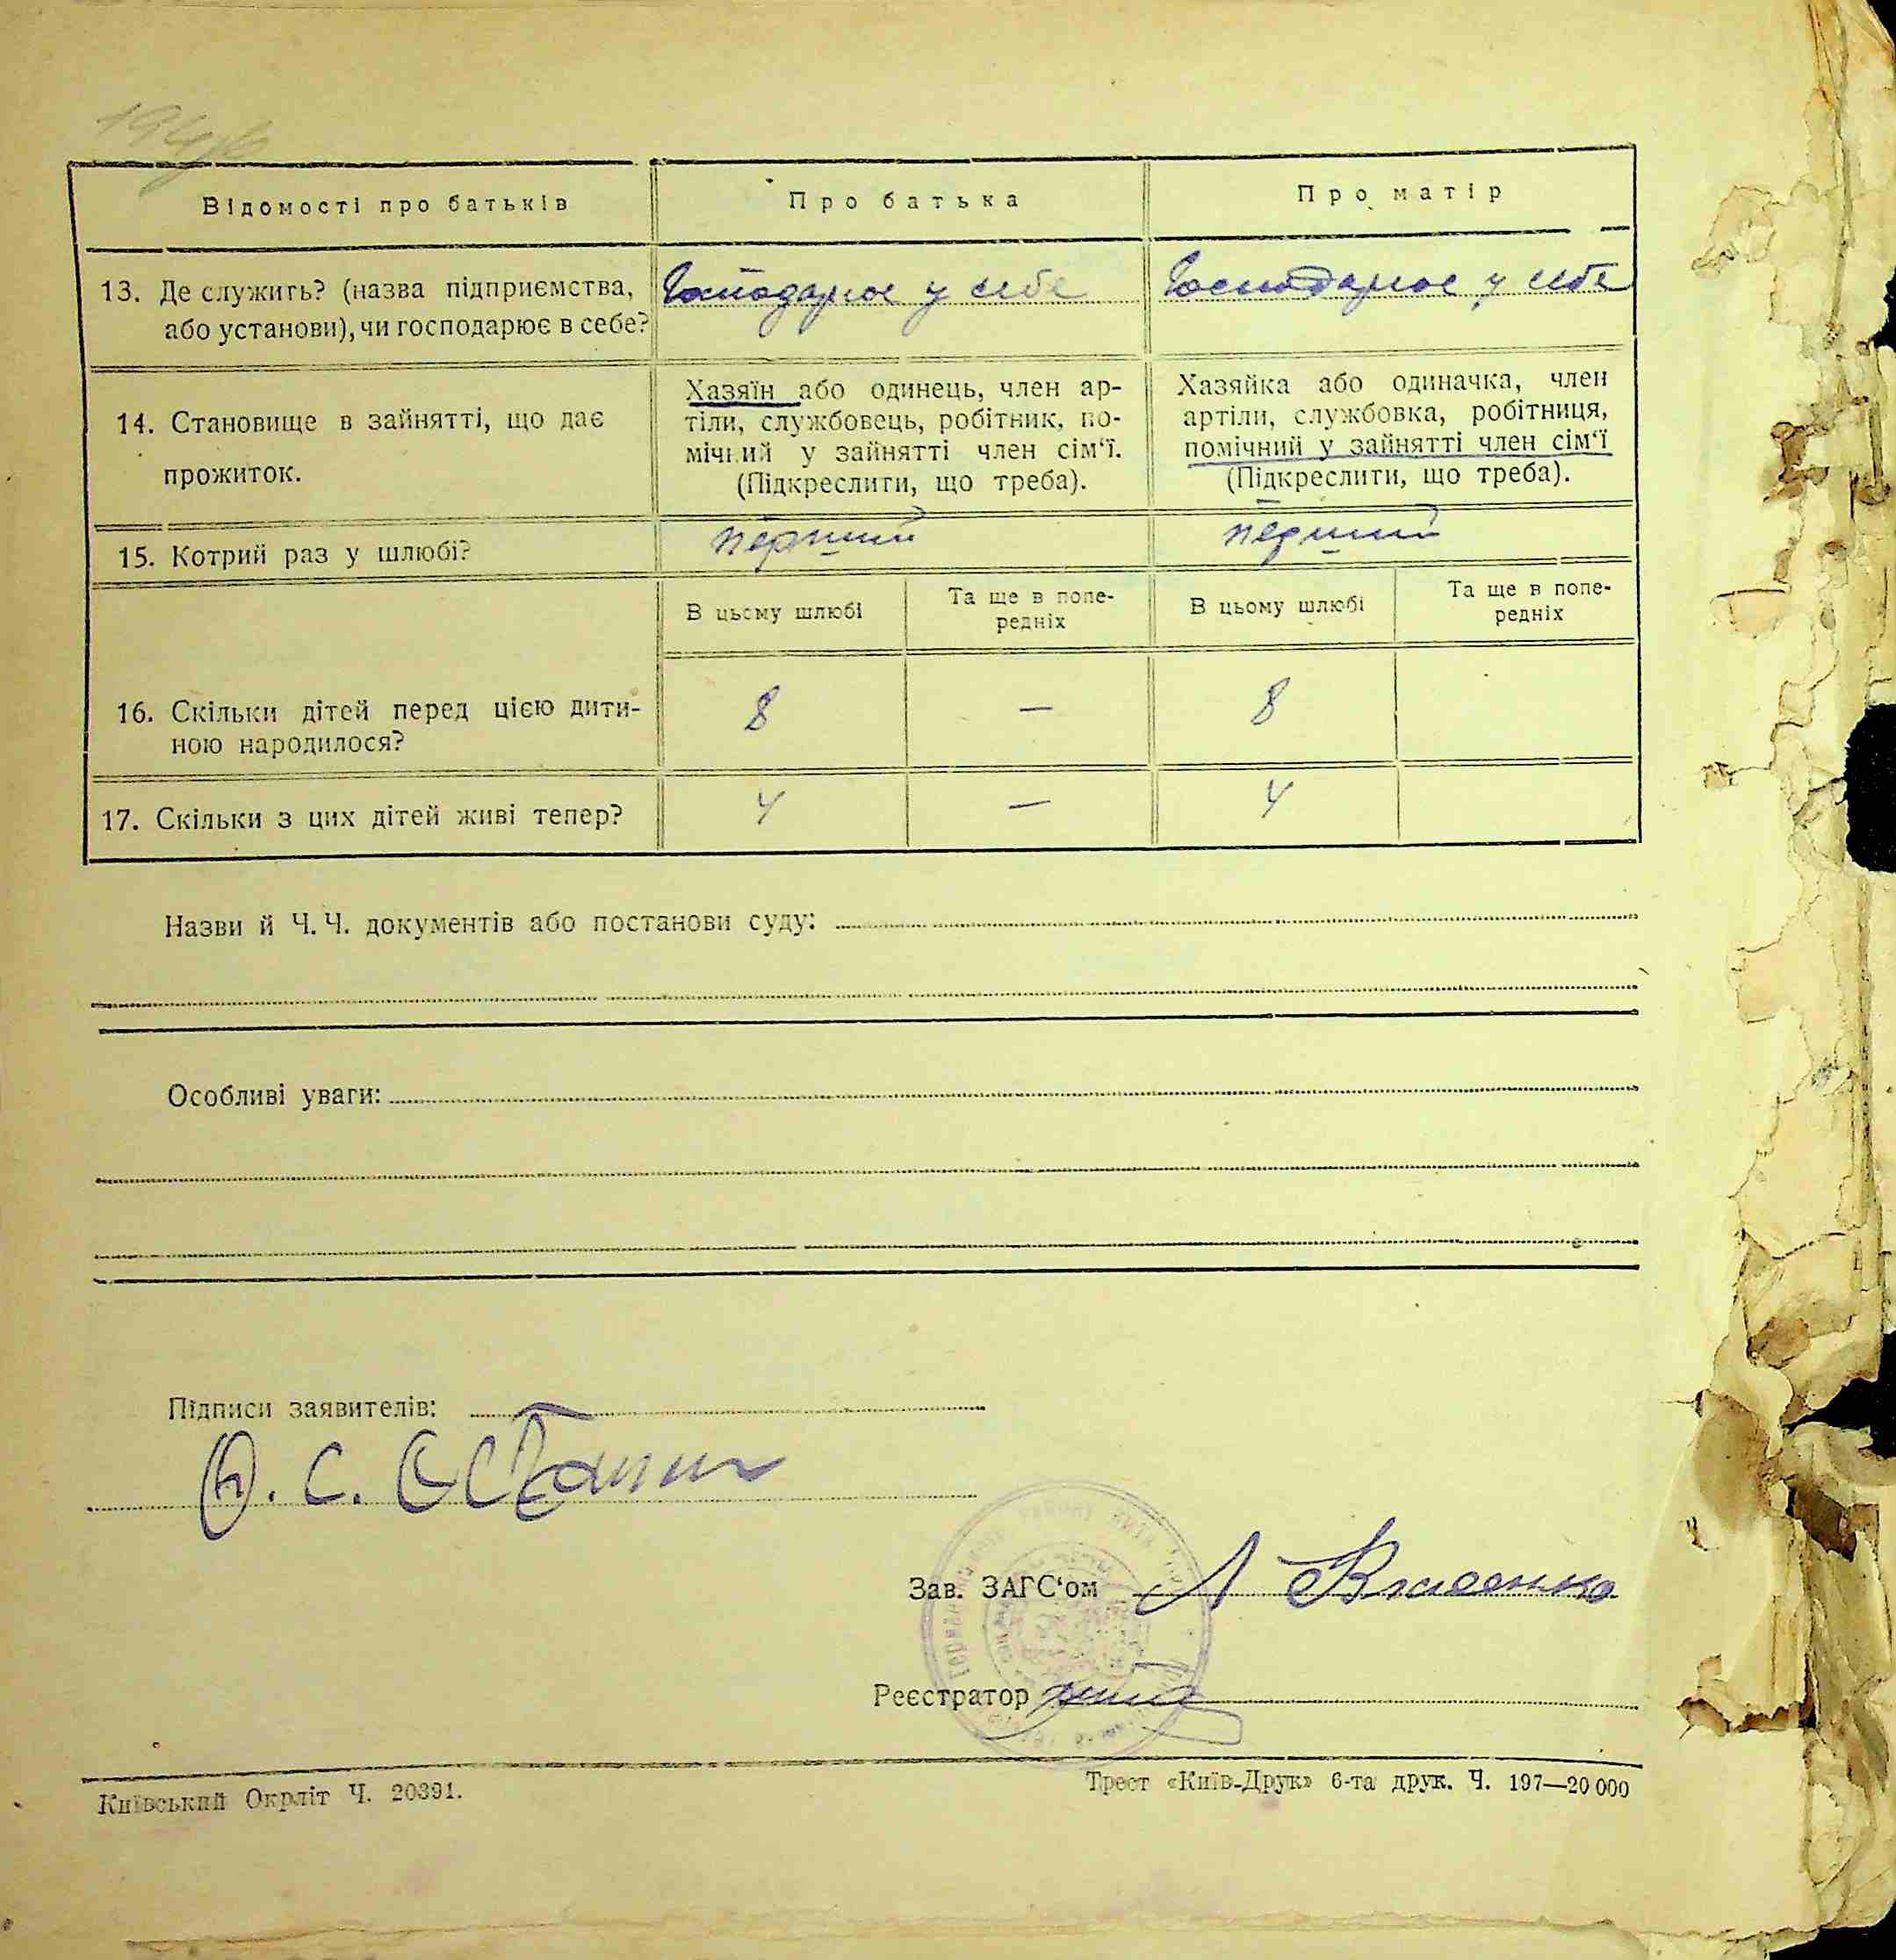 Відомості про батьків
Про батька
Про матір
13. Де служить? (назва підприємства,
або установи), чи господарює в себе?
Господарює у себе
Господарює у себе
14. Становище в зайнятті, що дає
прожиток.
Хазяїн або одинець, член ар-
тіли, службовець, робітник, по-
мічний у зайнятті член сім‘ї.
(Підкреслити, що треба).
Хазяйка або одиначка, член
артіли, службовка, робітниця,
помічний у зайнятті член сім‘ї
(Підкреслити, що треба).
15. Котрий раз у шлюбі?
перший
перший
В цьому шлюбі
Та ще в попе-
редніх
В цьому шлюбі
Та ще в попе-
редніх
16. Скільки дітей перед цією дити-
ною народилося?
8
—
8
17. Скільки з цих дітей живі тепер?
4
—
4
Назви й Ч. Ч. документів або постанови суду:
Особливі уваги:
Підписи заявителів:
Зав. ЗАГС‘ом Л Власенко
Реєстратор
Київський Окрліт Ч. 20391.
Трест «Київ-Друк» 6-та друк. Ч. 197—20 000